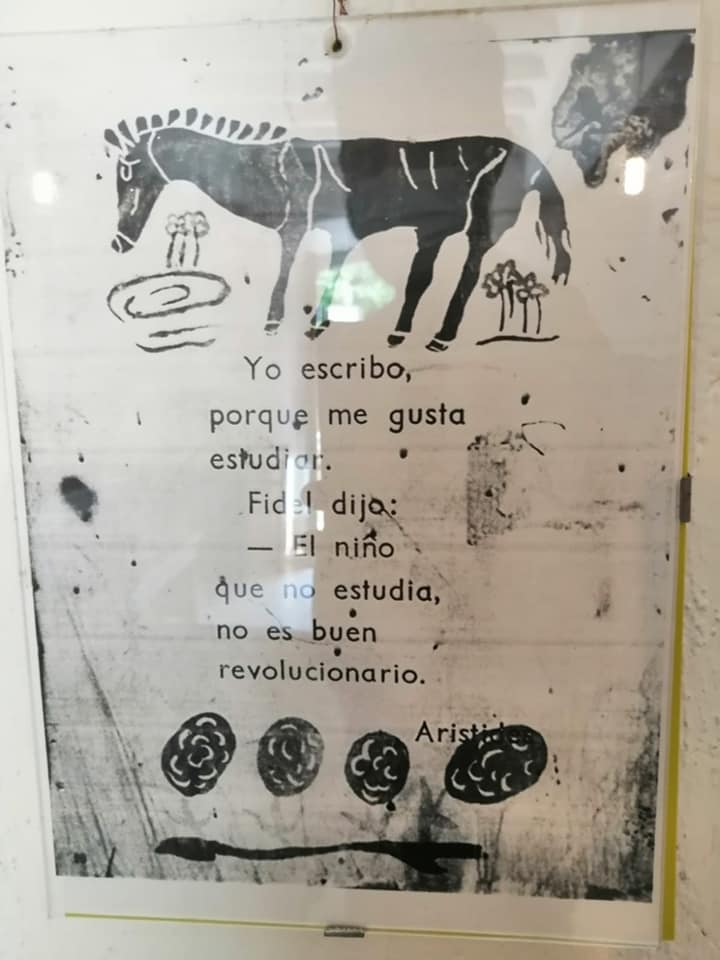 Yo escribo,
porque me gusta
estudiar.
Fidel dijo:
— El niño
que no estudia,
no es buen
revolucionario.
Aristides